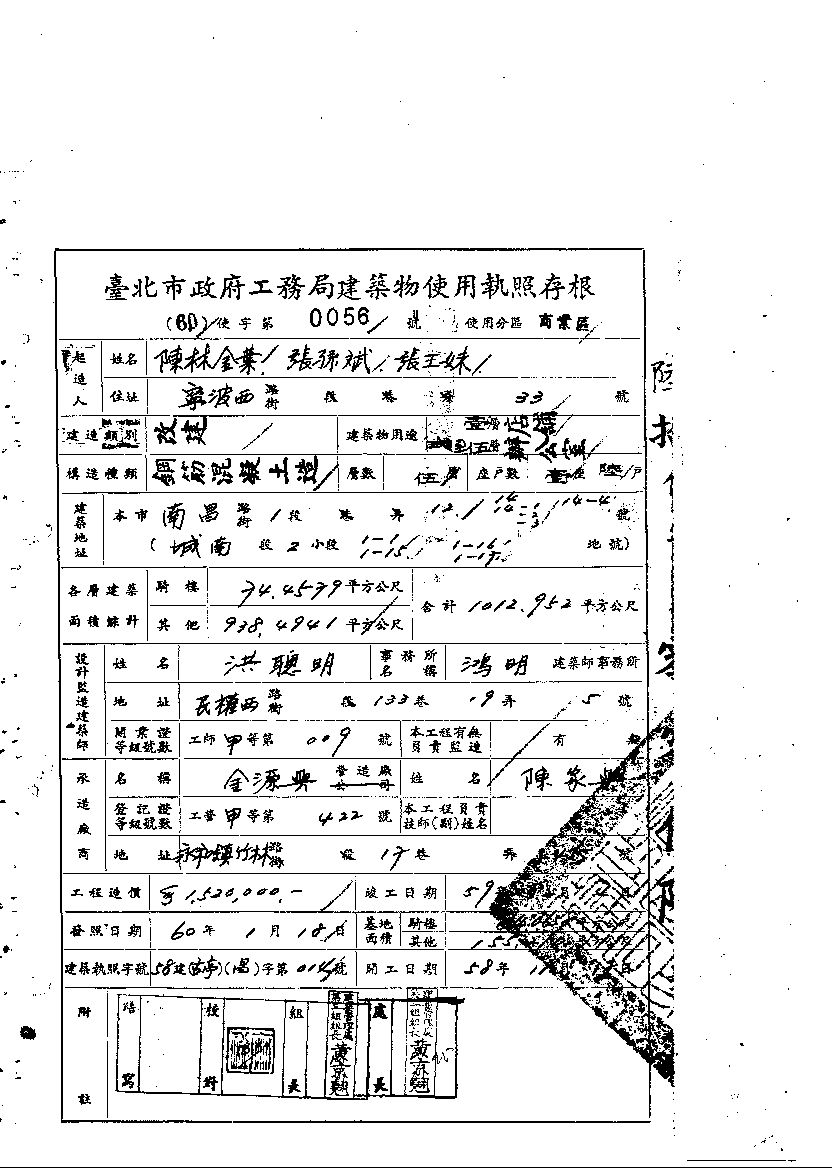 臺北市政府工務局建築物使用執照存根
(60)使字第 0056 號 使用分區 商業區
起造人 姓名 陳林金葉 張添斌 張王妹
住址 寧波西 路街 段 巷 弄 33 號
建造類別 改建 建築物用途 壹層店舖 伍層辦公室
構造種類 鋼筋混凝土造 層數 伍層 座戶數 壹座 陸戶
建築地址 本市 南昌 路街 1段 巷 弄 12 14 14-4 號
(城南 段 2 小段 1-1 1-15 1-16 地號)
各層建築面積餘計 騎樓 74.4539 平方公尺 合計 1012.952 平方公尺
其他 938.4941 平方公尺
設計監造建築師 姓名 洪聰明 事務所名稱 鴻明 建築師事務所
地址 民權西 路街 段 133 巷 19 弄 5 號
開業證等級號數 工師 甲 等第 009 號 本工程有無負責監造 有
承造廠商 名稱 金源興 營造廠公司 姓名 陳家興
登記證等級號數 工營 甲 等第 422 號 本工程負責技師(副)姓名
地址 永和鎮竹林 路街 段 17 巷 弄 號
工程造價 1,520,000.- 竣工日期 59 年 月 日
發照日期 60 年 1 月 18 日 基地面積 騎樓 平方公尺
其他 155
建築執照字號 58建(古亭)(南)字第 014 號 開工日期 58 年 11 月 日
附註 繕寫 校對 組長 處長
黃京翹 黃京翹